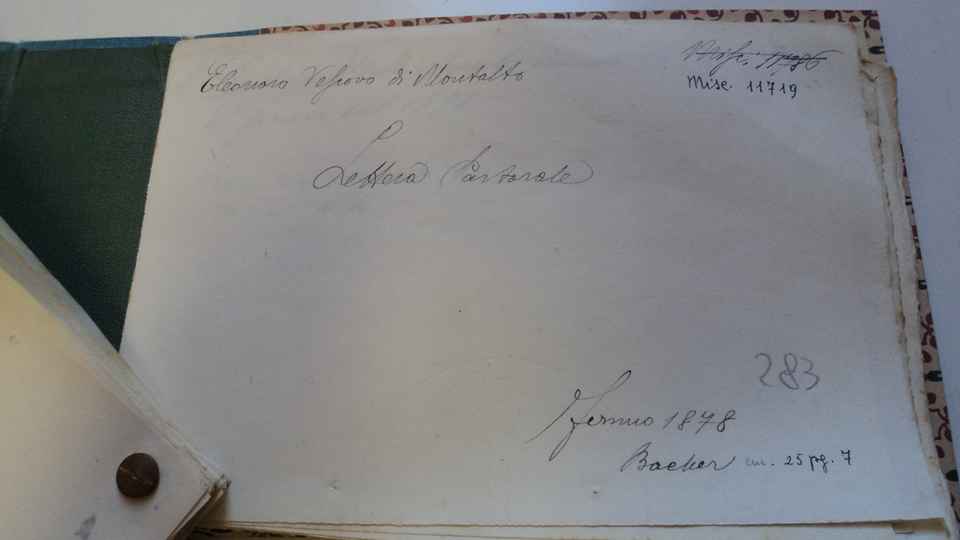 Eleonoro Vescovo di Montalto
Misc. 11719
Lettera Pastorale
283
Fermo 1878
Bacher in. 25 pg. 7